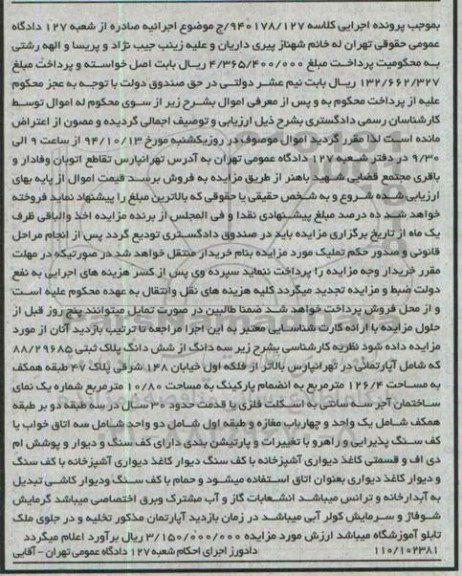 بموجب پرونده اجرایی کلاسه ۹۴۰۱۷۸/۱۲۷/ج موضوع اجرائیه صادره از شعبه ۱۲۷ دادگاه
عمومی حقوقی تهران له خانم شهناز پیری داریان و علیه زینب جیب نژاد و پریسا و الهه رشتی
به محکومیت پرداخت مبلغ ۴/۳۶۵/۴۰۰/۰۰۰ ریال بابت اصل خواسته و پرداخت مبلغ
۱۳۲/۶۶۲/۳۲۷ ریال بابت نیم عشر دولتی در حق صندوق دولت با توجه به عجز محکوم
علیه از پرداخت محکوم به و پس از معرفی اموال بشرح زیر از سوی محکوم له اموال توسط
کارشناسان رسمی دادگستری بشرح ذیل ارزیابی و توصیف اجمالی گردیده و مصون از اعتراض
مانده است لذا مقرر گردید اموال موصوف در روزیکشنبه مورخ ۹۴/۱۰/۱۳ از ساعت ۹ الی
۹/۳۰ در دفتر شعبه ۱۲۷ دادگاه عمومی تهران به آدرس تهرانپارس تقاطع اتوبان وفادار و
باقری مجتمع قضایی شهید باهنر از طریق مزایده به فروش برسد قیمت اموال از پایه بهای
ارزیابی شده شروع و به شخص حقیقی یا حقوقی که بالاترین مبلغ را پیشنهاد نماید فروخته
خواهد شد ده درصد مبلغ پیشنهادی نقدا و فی المجلس از برنده مزایده اخذ والباقی ظرف
یک ماه از تاریخ برگزاری مزایده باید در صندوق دادگستری تودیع گردد پس از انجام مراحل
قانونی و صدور حکم تملیک مورد مزایده بنام خریدار منتقل خواهد شد در صورتیکه در مهلت
مقرر خریدار وجه مزایده را پرداخت ننماید سپرده وی پس از کسر هزینه های اجرایی به نفع
دولت ضبط و مزایده تجدید میگردد کلیه هزینه های نقل وانتقال به عهده محکوم علیه است
و از محل فروش پرداخت خواهد شد ضمنا طالبین در صورت تمایل میتوانند پنج روز قبل از
حلول مزایده با ارائه کارت شناسایی معتبر به این اجرا مراجعه تا ترتیب بازدید آنان از مورد
مزایده داده شود نظریه کارشناسی بشرح زیر سه دانگ از شش دانگ پلاک ثبتی ۸۸/۲۹۶۸۵
که شامل آپارتمانی در تهرانپارس بالاتر از فلکه اول خیابان ۱۴۸ شرقی پلاک ۴۷ طبقه همکف
به مساحت ۱۲۶/۴ مترمربع به انضمام پارکینگ به مساحت ۱۰/۸۰ مترمربع شماره یک نمای
ساختمان آجر سه سانتی به اسکلت فلزی با قدمت حدود ۳۰ سال در سه طبقه دو بر طبقه
همکف شامل یک واحد و چهارباب مغازه و طبقه اول شامل دو واحد شامل سه اتاق خواب با
کف سنگ پذیرایی و راهرو با تغییرات و پارتیشن بندی دارای کف سنگ و دیوار و پوشش ام
دی اف و قسمتی کاغذ دیواری آشپزخانه با کف سنگ دیوار کاغذ دیواری آشپزخانه با کف سنگ
و دیوار کاغذ دیواری بعنوان اتاق استفاده میشود و حمام با کف سنگ ودیوار کاشی تبدیل
به آبدارخانه و ترانس میباشد انشعابات گاز و آب مشترک وبرق اختصاصی میباشد گرمایش
شوفاژ و سرمایش کولر آبی میباشد در زمان بازدید آپارتمان مذکور تخلیه و در جلوی ملک
تابلو آموزشگاه میباشد ارزش مورد مزایده ۳/۱۵۰/۰۰۰/۰۰۰ ریال برآورد اعلام میگردد
۱۱۰/۱۰۲۳۸۱ دادورز اجرای احکام شعبه ۱۲۷ دادگاه عمومی تهران - آقایی